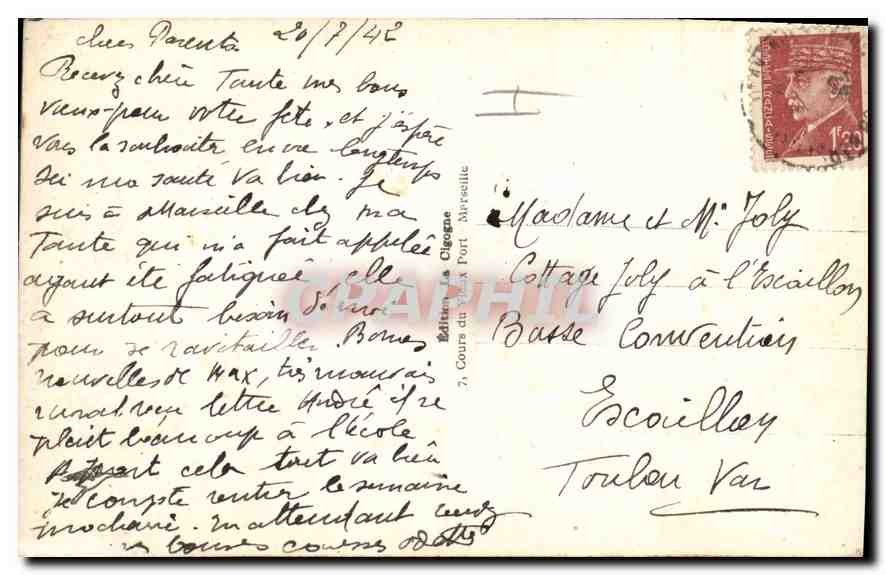 chers Parents 20/7/42
Recevez chère Tante mes bons
vœux pour votre fête, et j'espère
vous la souhaiter encore longtemps
ici ma santé va bien. Je
suis à Marseille chez ma
Tante qui m'a fait appelée
ayant été fatiguée elle
a surtout besoin de moi
pour se ravitailler. Bonnes
nouvelles de Max, très mauvais
moral reçu lettre André il se
plait beaucoup à l'école
part cela tout va bien
je compte rentrer la semaine
prochaine. En attendant recevez
bonnes caresses Odette
Édition La Cigogne
7, Cours du Vieux Port Marseille
CPAPHIL
POSTES FRANÇAISES
1F20
Madame et Mr Joly
Cottage Joly à l'Escaillon
Basse Convention
Escaillon
Toulon Var